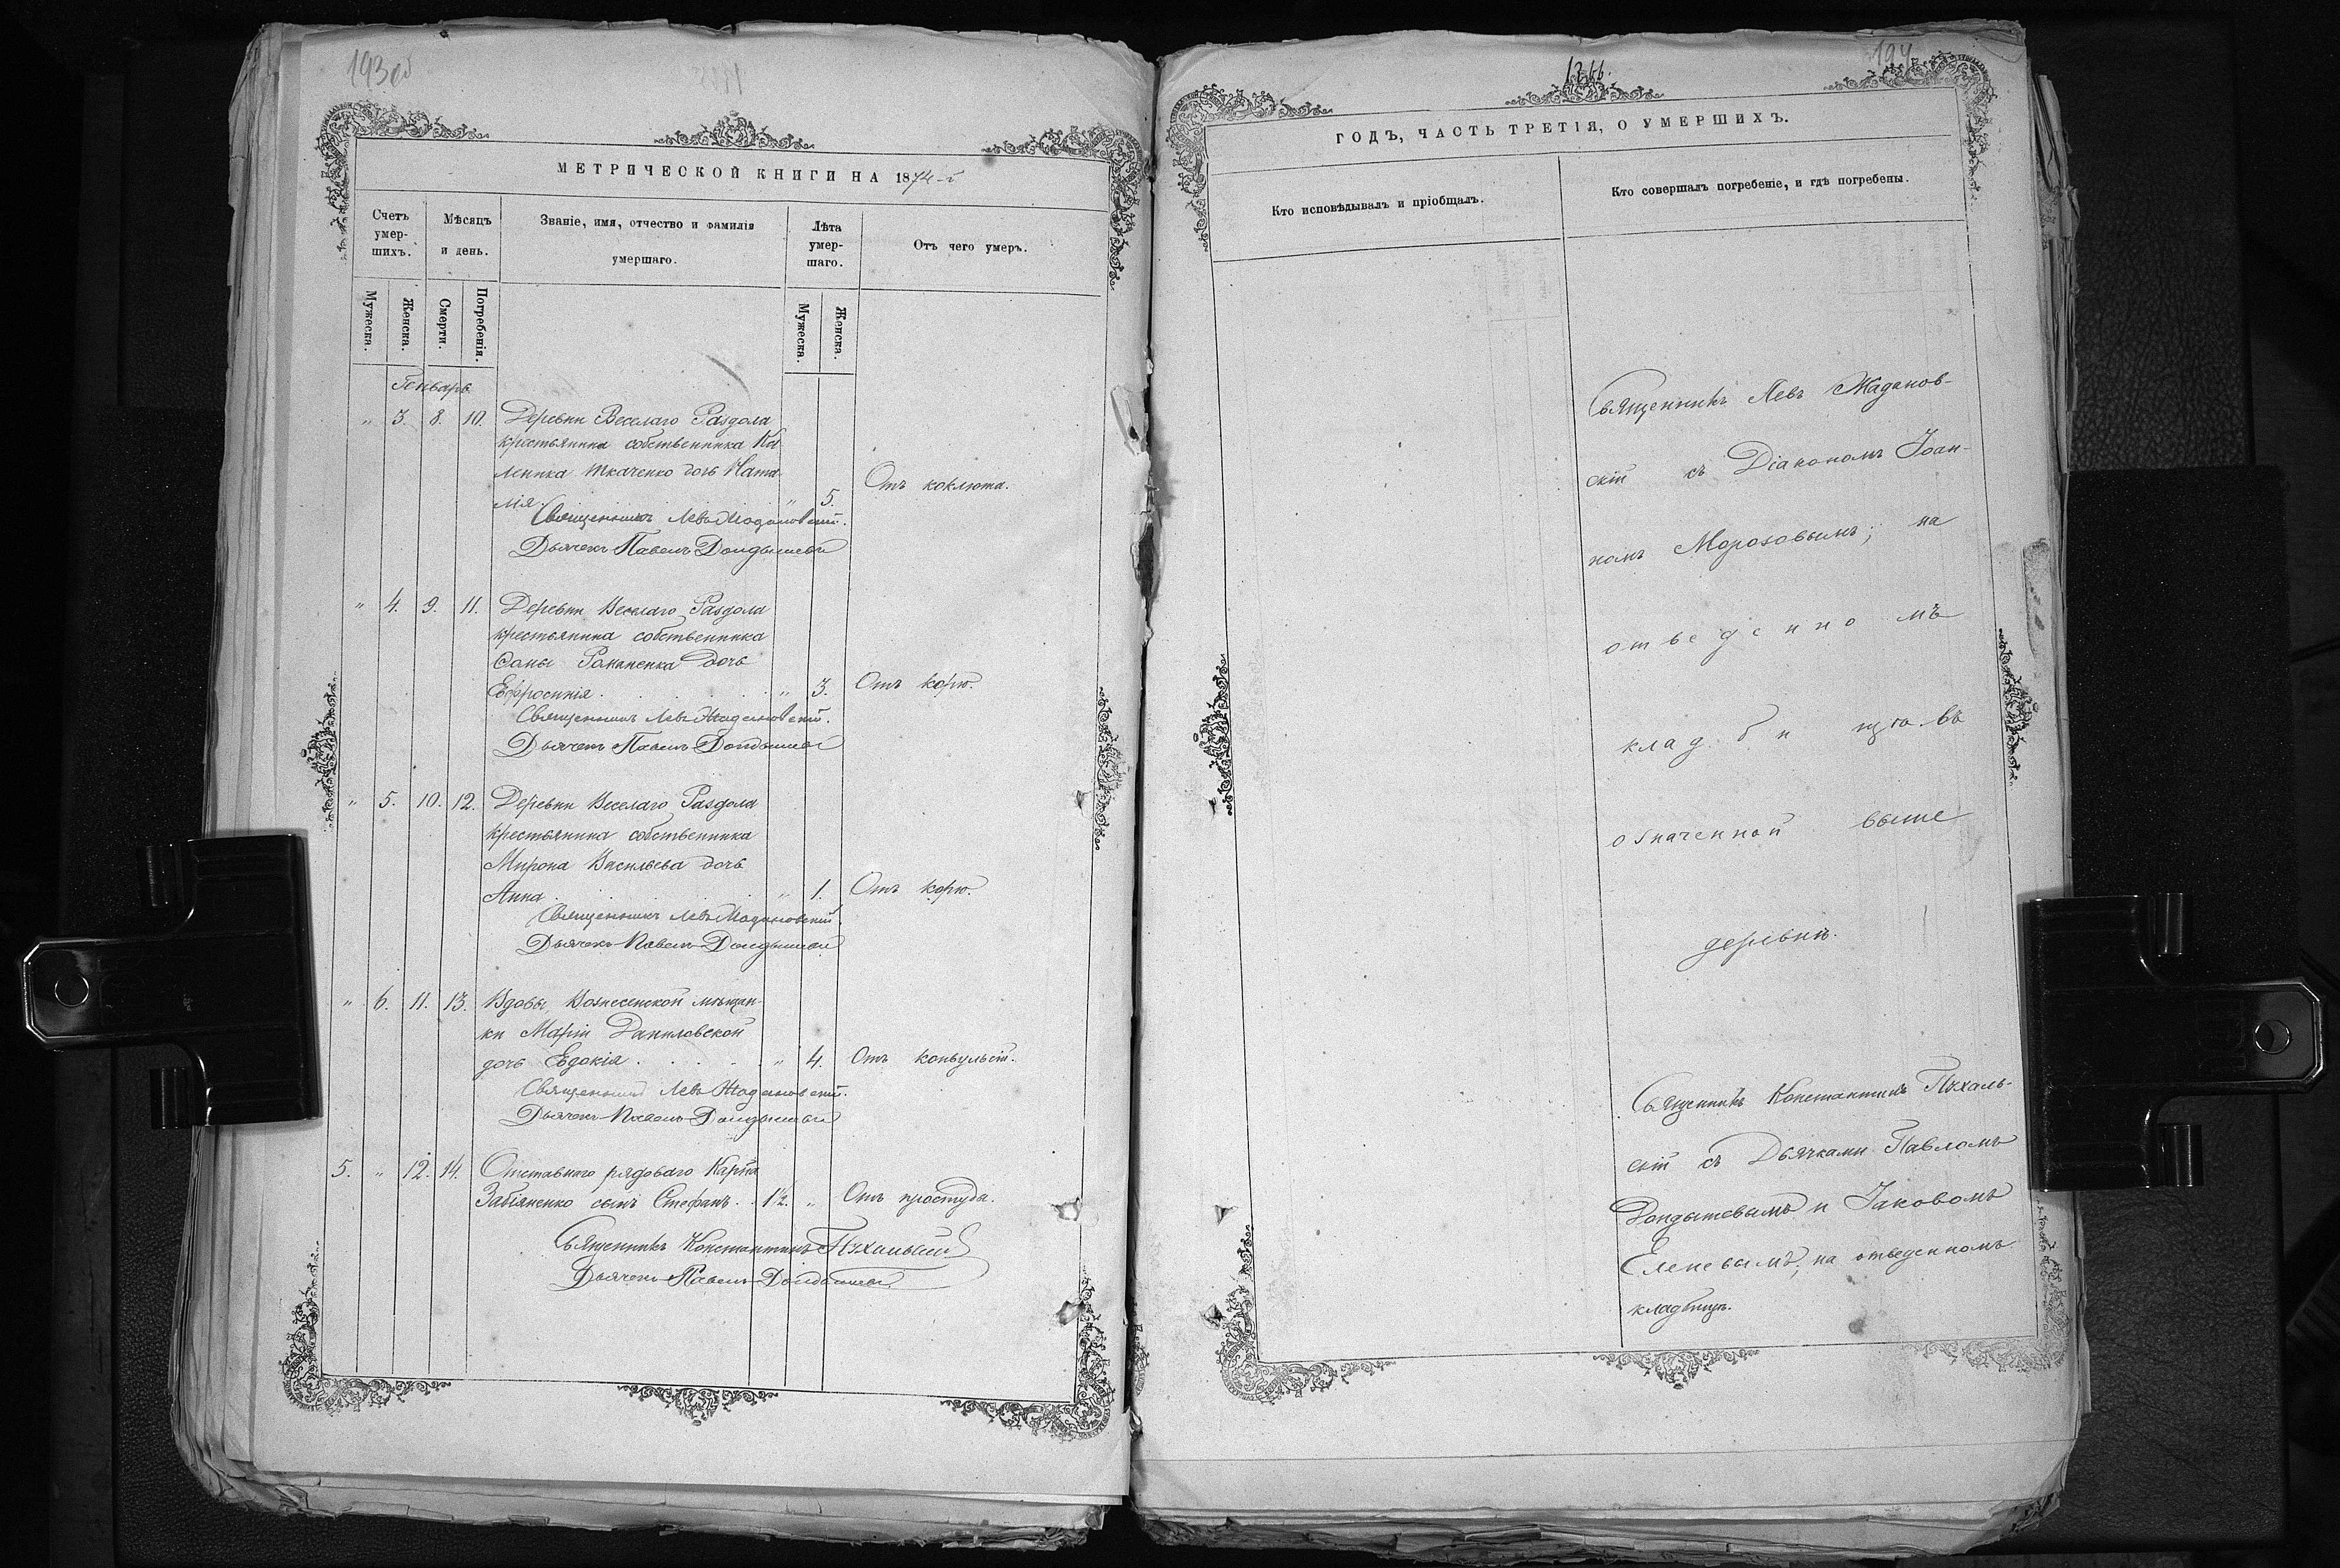 193об
МЕТРИЧЕСКОЙ КНИГИ НА 1874-й
Счетъ умер-шихъ.
Мѣсяцъ и день.
Званіе, имя, отчество и фамилія умершаго.
Лѣта умер-шаго.
Отъ чего умеръ.
Мужеска.
Женска.
Смерти.
Погребенія.
Мужеска.
Женска.
Генварь
" 3. 8. 10. Деревни Веселаго Раздола
крестьянина собственника Ка-
леника Ткаченко дочь Ната-
лія. " 5. Отъ коклюша.
Священникъ Левъ Жадановскій.
Дьячекъ Павелъ Дондышевъ
" 4. 9. 11. Деревни Веселаго Раздола
крестьянина собственника
дочь
Евфросинія. " 3. Отъ корю.
Священникъ Левъ Жадановскій.
Дьячекъ Павелъ Дондышевъ
" 5. 10. 12. Деревни Веселаго Раздола
крестьянина собственника
Мирона Васильева дочь
Анна " 1. Отъ корю.
Священникъ Левъ Жадановскій.
Дьячекъ Павелъ Дондышевъ
" 6. 11. 13. Вдовы Вознесенской мѣщан-
ки Маріи Даниловской
дочь Евдокія " 4. Отъ конвульсій.
Священникъ Левъ Жадановскій.
Дьячекъ Павелъ Дондышевъ
5. " 12. 14. Отставного рядоваго Карпа
Забіяненко сынъ Стефанъ. 1½. " Отъ простуды.
Священникъ Константинъ Пѣхальскій
Дьячекъ Павелъ Дондышевъ
194
1266.
ГОДЪ, ЧАСТЬ ТРЕТІЯ, О УМЕРШИХЪ.
Кто исповѣдывалъ и пріобщалъ.
Кто совершалъ погребеніе, и гдѣ погребены.
Священникъ Левъ Жаданов-
скій съ Діакономъ Іоан-
номъ Морозовымъ; на
отведенномъ
кладбищѣ въ
означенной выше
деревни.
Священникъ Константинъ Пѣхаль-
скій съ Дьячками Павломъ
Дондышевымъ и Іаковомъ
Еленевымъ; на отведенномъ
кладбищѣ.